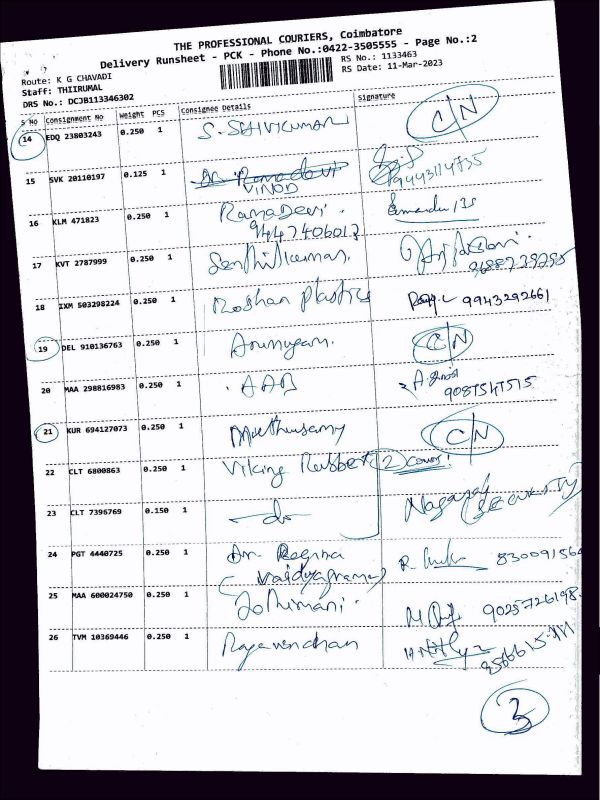 THE PROFESSIONAL COURIERS, Coimbatore
Delivery Runsheet - PCK - Phone No.:0422-3505555 - Page No.:2
Route: K G CHAVADI
RS No.: 1133463
Staff: THIIRUMAL
RS Date: 11-Mar-2023
DRS No.: DCJB113346302
S No Consignment No Weight PCS Consignee Details Signature
14 EDQ 23803243 0.250 1 S. SHIVKUMAR C/N
15 SVK 20110197 0.125 1 VINOD 9443114735
16 KLM 471823 0.250 1 RamaDevi.
9447406013
17 KVT 2787999 0.250 1 Senthilkumar.
18 IXM 503298224 0.250 1 Roshan plastics 9943292661
19 DEL 910136763 0.250 1 Arumugam. C/N
20 MAA 298816983 0.250 1 AAB
21 KUR 694127073 0.250 1 Muthusamy C/N
22 CLT 6800863 0.250 1 Viking Rubber 2 cover!
23 CLT 7396769 0.150 1 do Nagaraj
SECURITY
24 PGT 4440725 0.250 1 830091560
Vaidyagrama
25 MAA 600024750 0.250 1 Jothimani. 9025726198
26 TVM 10369446 0.250 1 Ragavendhan
3